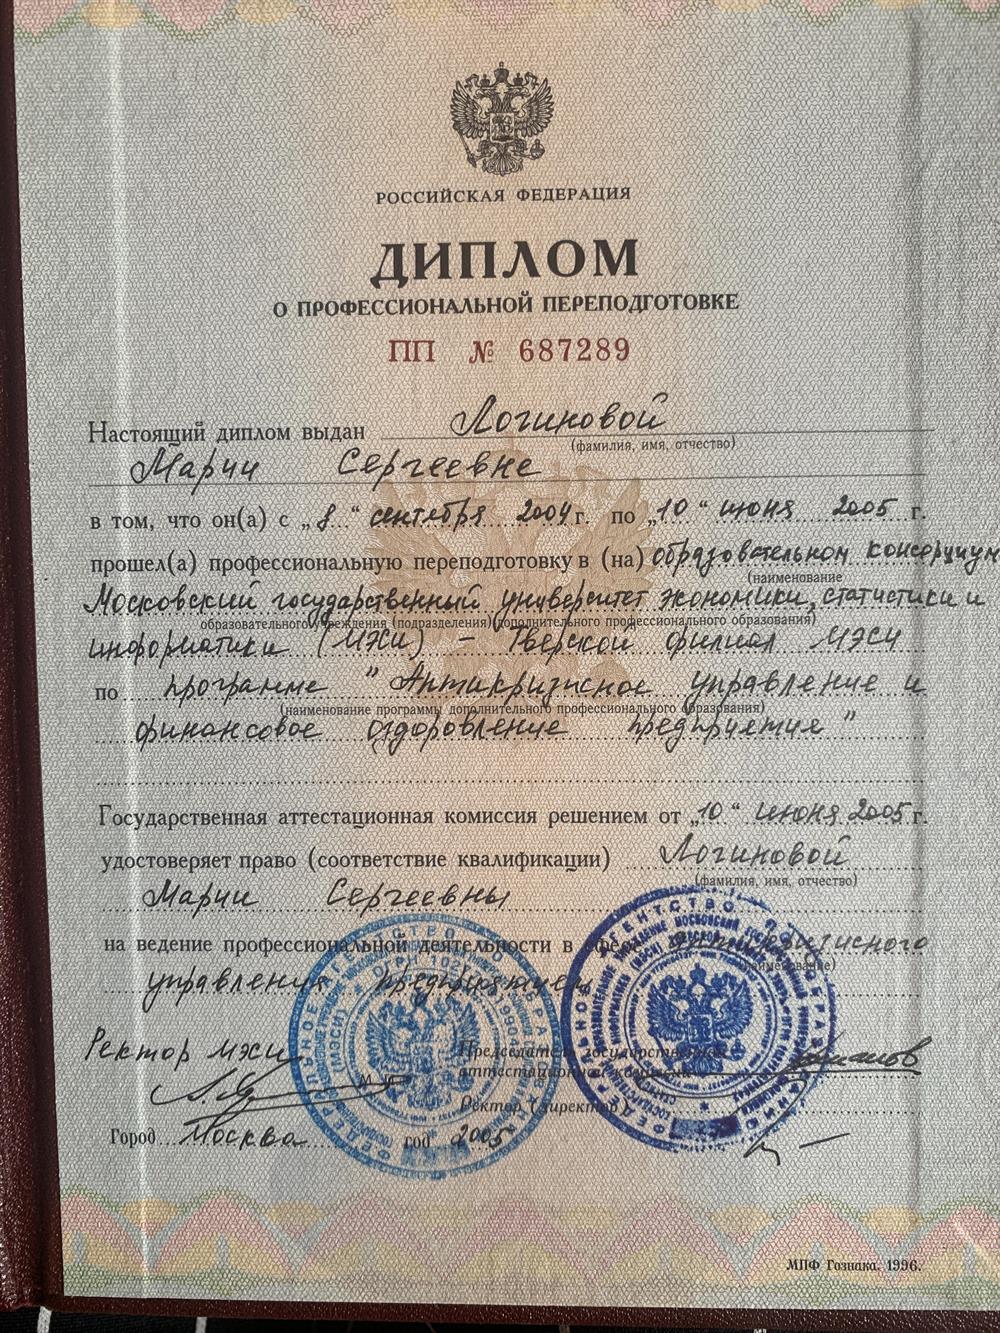 РОССИЙСКАЯ ФЕДЕРАЦИЯ
ДИПЛОМ
О ПРОФЕССИОНАЛЬНОЙ ПЕРЕПОДГОТОВКЕ
ПП № 687289
Настоящий диплом выдан Логиновой
(фамилия, имя, отчество)
Марии Сергеевне
в том, что он(а) с „8“ сентября 2004 г. по „10“ июня 2005 г.
прошел(а) профессиональную переподготовку в (на) образовательном консорциум
(наименование
Московский государственный университет экономики, статистики и
образовательного учреждения (подразделения) дополнительного профессионального образования)
информатики (МЭСИ) – Тверской филиал МЭСИ
по программе "Антикризисное управление и
(наименование программы дополнительного профессионального образования)
финансовое оздоровление предприятия"
Государственная аттестационная комиссия решением от „10“ июня 2005 г.
удостоверяет право (соответствие квалификации) Логиновой
(фамилия, имя, отчество)
Марии Сергеевны
на ведение профессиональной деятельности в сфере антикризисного
(наименование)
управления предприятием
Ректор МЭСИ
Председатель государственной
аттестационной комиссии
Ректор (директор)
Город Москва год 2005
МПФ Гознака. 1996.